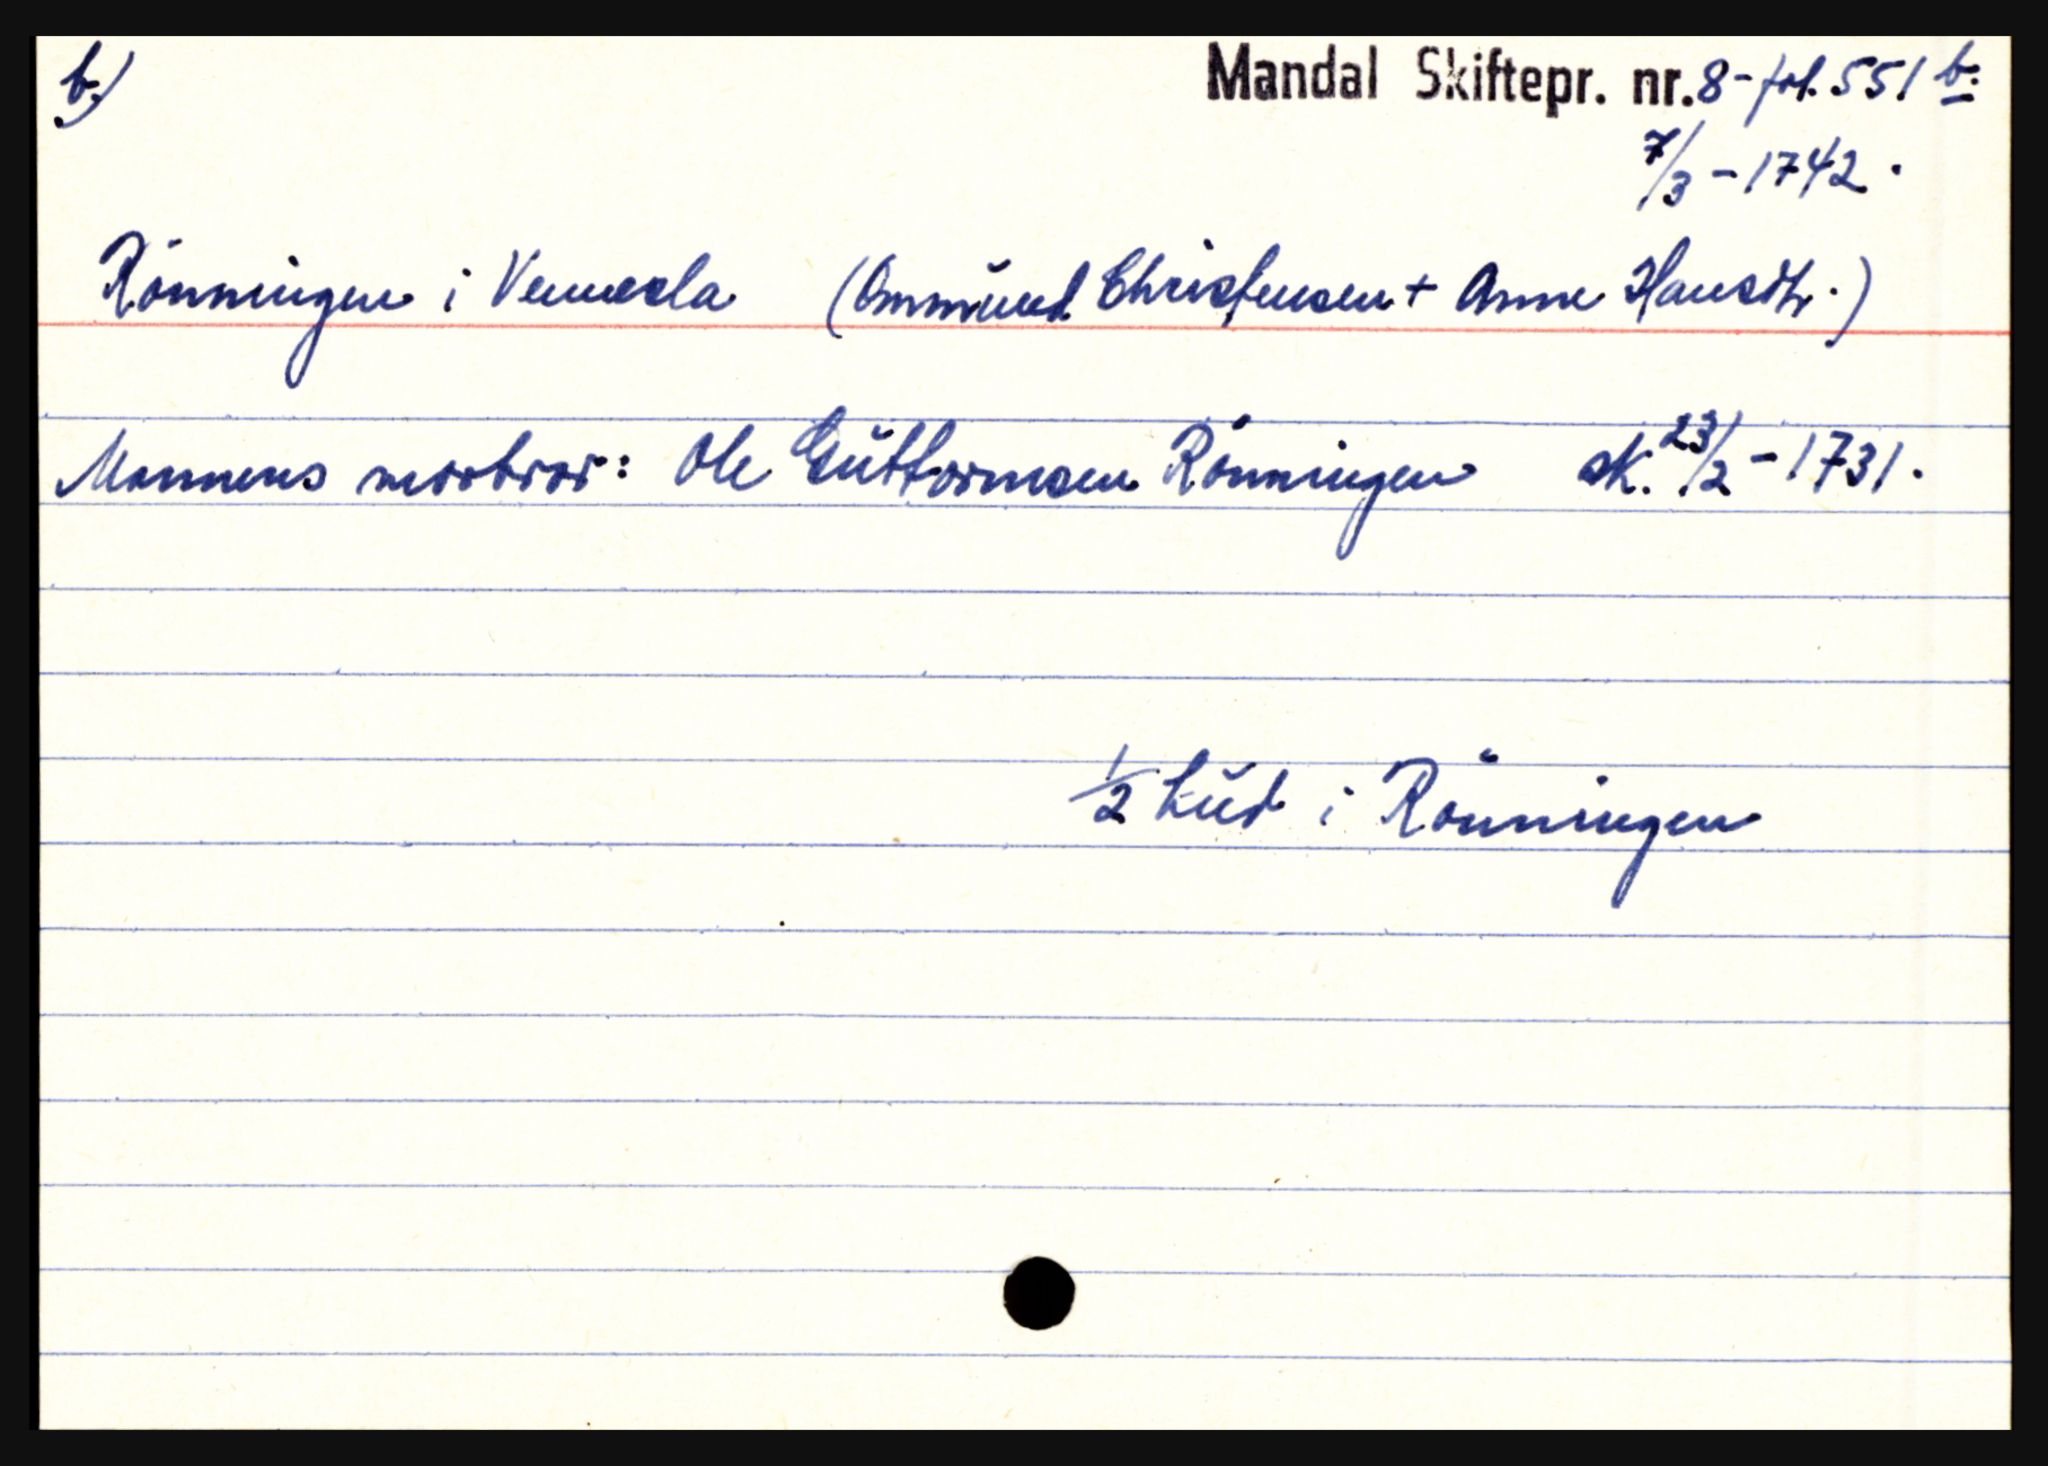 b.)
Mandal Skiftepr. nr. 8 - fol. 551 b.
7/3 - 1742.
Rönningen i Vennesla (Ommund Christensen + Anne Hansdtr.)
Mannens morbror: Ole Guttormsen Rönningen sk. 23/2 - 1731.
1/2 hud i Rönningen